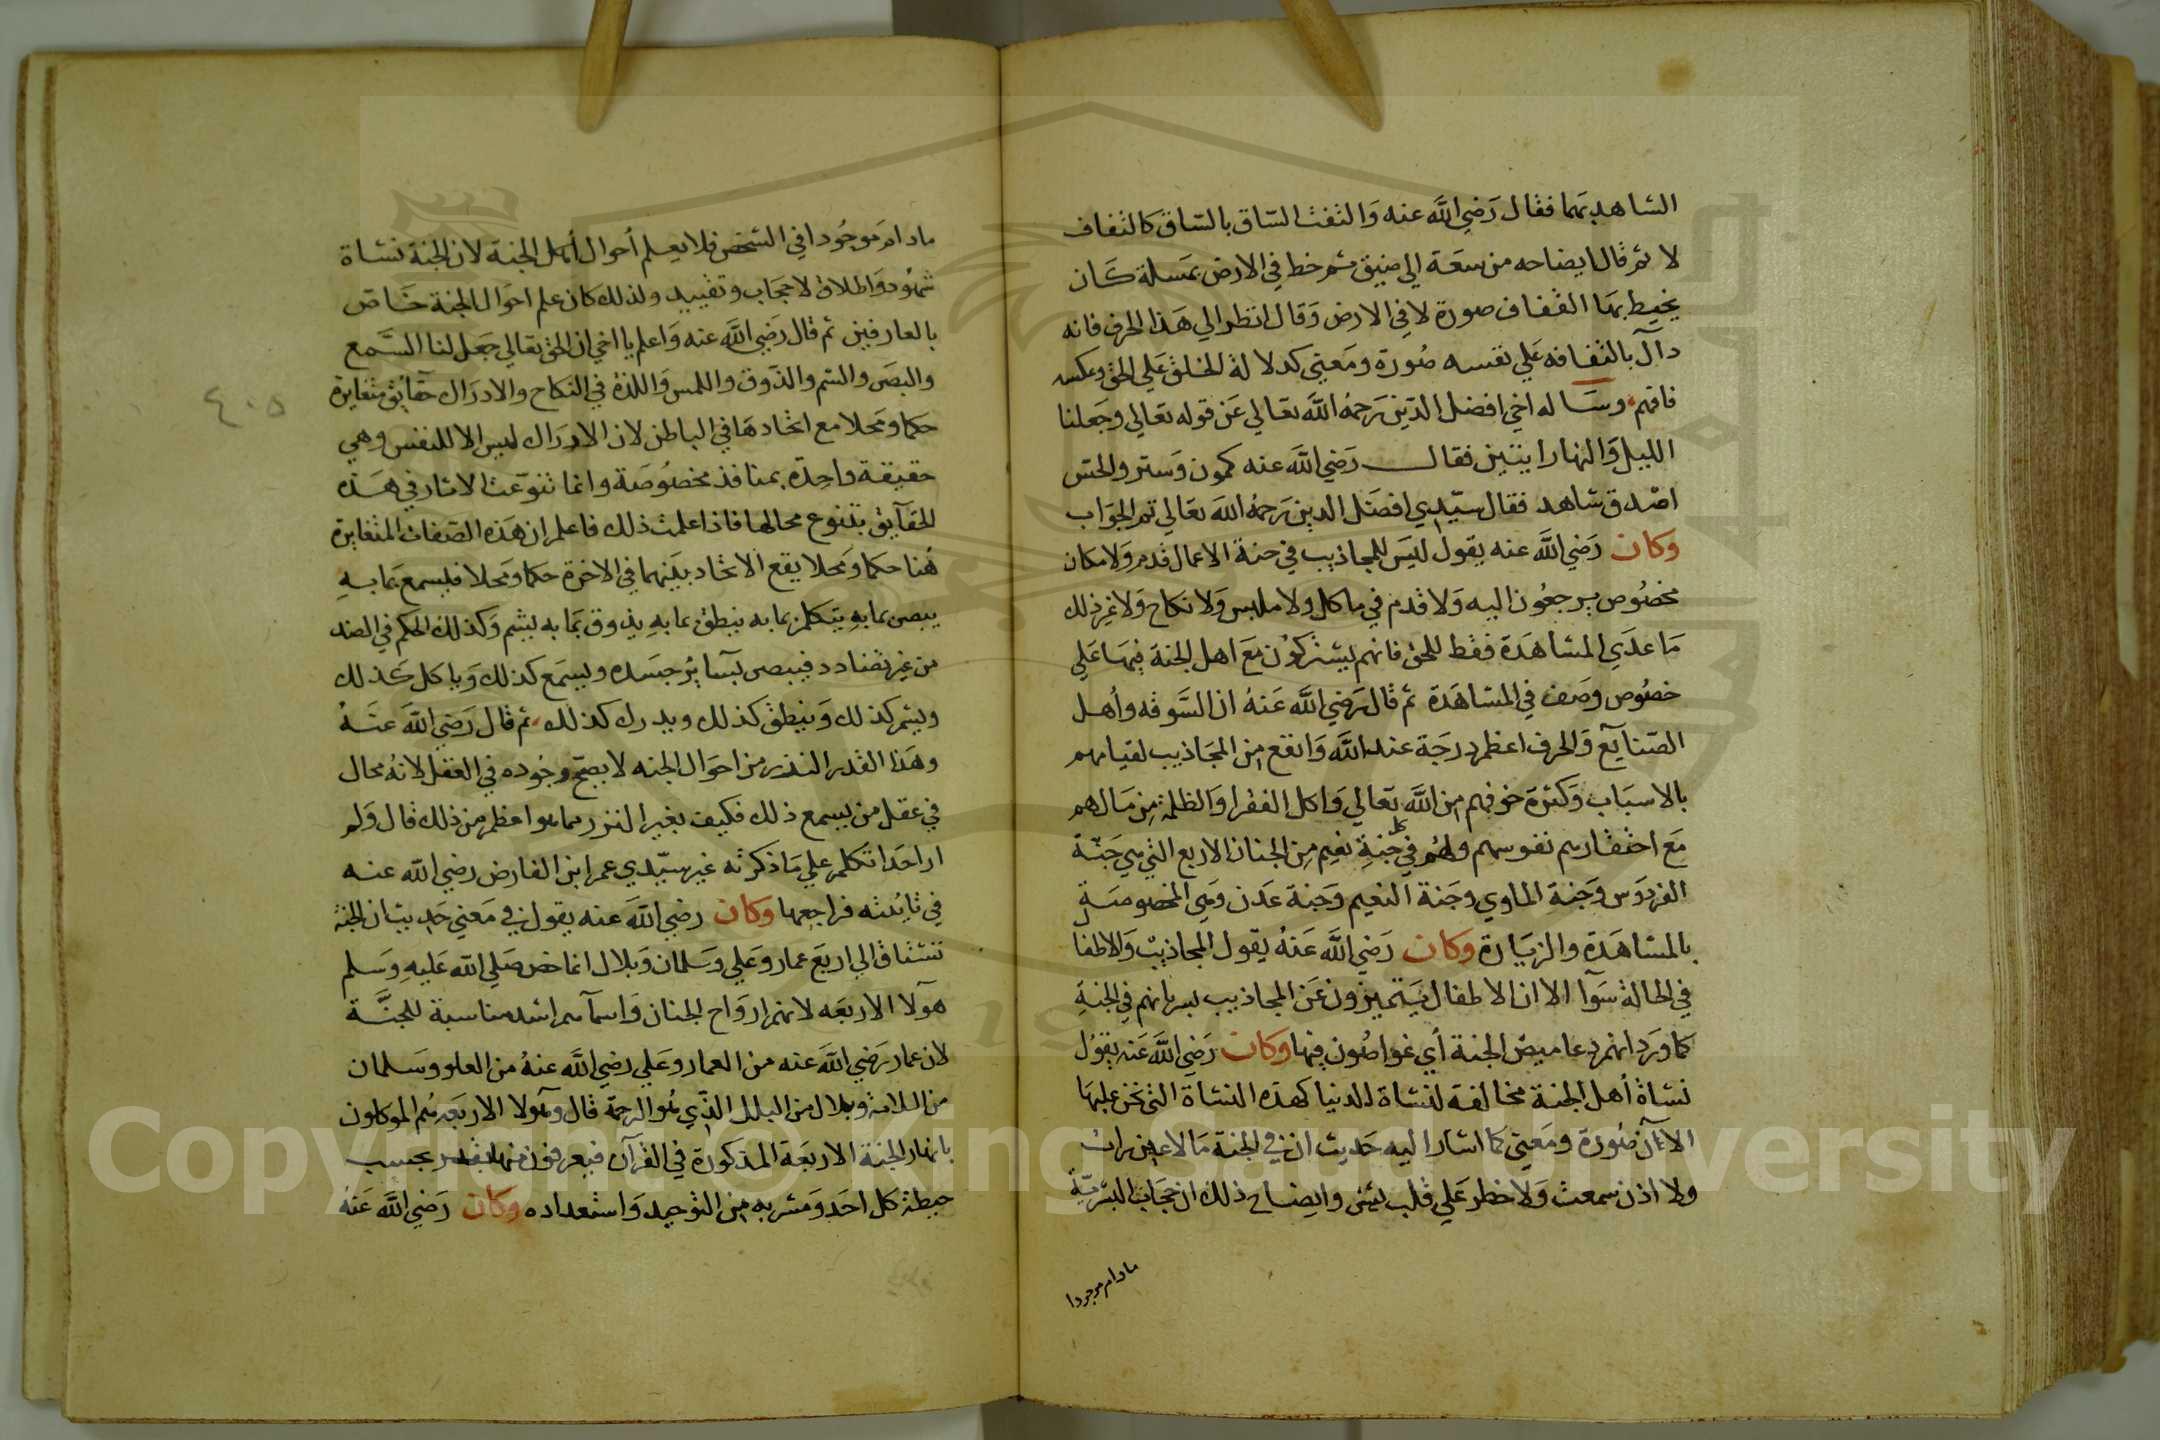 الشاهد بهما فقال رَضي الله عنه وَالتفت الساق بالساق كالتفاف
لا ثم قال ايضاحه من سعَة الي ضيق ثم خط في الارض بمسلة كَان
يخيط بها القفاف صورة لا في الارض وَقال انظر الي هَذا الحرف فانه
دآل بالتفافه عَلي نفسه صُورة ومَعني كدلالة الخلق عَلي الحق وعكسه
فافهم وسَاله اخي افضل الدّين رَحمهُ الله تعَالي عَن قوله تعَالي وجَعلنا
الليل وَالنهار ايتين فقال رَضي الله عنه كمون وَستر والحس
اصْدق شاهد فقال سيّدي افضَل الدين رَحمهُ الله تعَالي تم الجوَاب
وكان رَضي الله عنه يقول ليَس للمجاذيب في جنة الاعمال قدم وَلا مكان
مخصُوص يرجعُون اليه وَلا قدم في ماكل ولا ملبس وَلا نكاح وَلا غير ذلك
مَا عدَي المشاهَدة فقط للحق فانهم يشتركوُن مَع اهل الجنة فيهَا عَلي
خصُوص وصَف في المشاهَدة ثم قال رَضي الله عَنهُ ان السَّوقه وأهل
الصّنايع وَالحرف اعظم درجَة عند الله وَانفع مِن المجَاذيب لقيامهم
بالاسبَاب وَكثرة خوفهم مِن الله تعَالي وَاكل الفقرا وَالظلمة مِن مَالهم
مَع احتقارهم نفوسهم ولهُم في كل جَنةِ نعيم مِن الجنان الاربع التي هي جَنّة
الفردَوس وَجَنةِ الماوي وجَنة النعيم وَجَنة عَدن وَهي المخصوصَة
بالمشاهَدة والزيَارة وكان رَضي الله عَنهُ يقول المجاذيبْ وَالاطفال
في الحالة سَوآ الا ان الاطفال يَتميزون عَن المجاذيب بسريانهم في الجنةِ
كما ورَد انهم دعاميص الجنة أي غواصُون فيها وكان رَضي الله عَنه يقوُل
نشاة أهل الجنة مخالفة لنشاة الدنيا كهَذه النشاة التي نحن عليهَا
الآن صُورة ومَعني كما اشار اليه حَديث ان في الجنة مَا لا عين رات
ولا اذن سمعت وَلا خطر عَلي قلب بشر وايضاح ذلك ان حجَاب البشريّة
ما دام موجودا
ما دامَ موجُودا في الشخص فلا يعِلم أحوال أهل الجنة لان الجنة نشاة
شهُود وَاطلاق لا حجَاب وتقييد ولذلك كان علم احوَال الجنة خَاص
بالعارفين ثم قال رَضي الله عنه وَاعلم يا اخي ان الحق تعالي جعَل لنا السَّمع
والبصَر والشم والذَوق واللمس وَاللذة في النكاح والادرَاك حَقايق متغايرة
حكما ومَحلا مع اتحادهَا في الباطن لان الادرَاك ليس الا للنفس وهي
حقيقة واحِدة بمنافذ مخصُوصَة وانما تنوّعت الاثار في هَذه
الحقَآيق بتنوع محالها فاذا علمت ذلك فاعلم ان هَذه الصّفات المتغايرة
هُنا حكما ومَحلا يقع الاتحاد بيَنهما في الاخرة حكما ومَحلا فيسمع بما بهِ
يبصر بما بهِ يتكلم بما به ينطق بما بهِ يذوق بمَا به يشم وَكذلك الحكم في الضد
من غير تضادد فيبصر بسَآير جسَده ويسمع كذلك وَياكل كذلك
ويشم كذلك وَينطق كذلك ويدرك كذلك ثم قال رَضي الله عَنهُ
وهَذا القدر النذر من احوَال الجنه لا يصحّ وجُوده في العقل لانهُ محال
في عقل من يسمع ذلك فكيف بغير النزر مما هو اعظم من ذلك قال وَلم
ار احَدا تكلم علي مَا ذكرته غير سيّدي عمر ابن الفارض رضي الله عنه
في تايئته فراجعها وكان رضي الله عنه يقول في مَعني حَديث ان الجنة
تشتاق الي اربع عمار وعَلي وَسَلمان وَبلال انما خص صَلي الله عَليهِ وَسَلم
هَوآلا الاربعَه لانهم ارواح الجنان وَاسمآهم اشد مناسبة للجنَّة
لان عمار رَضي الله عنه من العمار وعَلي رضي الله عنهُ من العلو وسَلمان
من السلامة وبلال من البلل الذي هو الرحمة قال وهَولا الاربَعه هُم الموكلون
بانهار الجنة الاربَعَة المذكورَة في القرآن فيعرفون منها بقدر بحسب
حيطة كل احَد وَمشربه مِن التوحيد وَاستعداده وكان رَضي الله عَنهُ
٤٠٥
Copyright © King Saud University